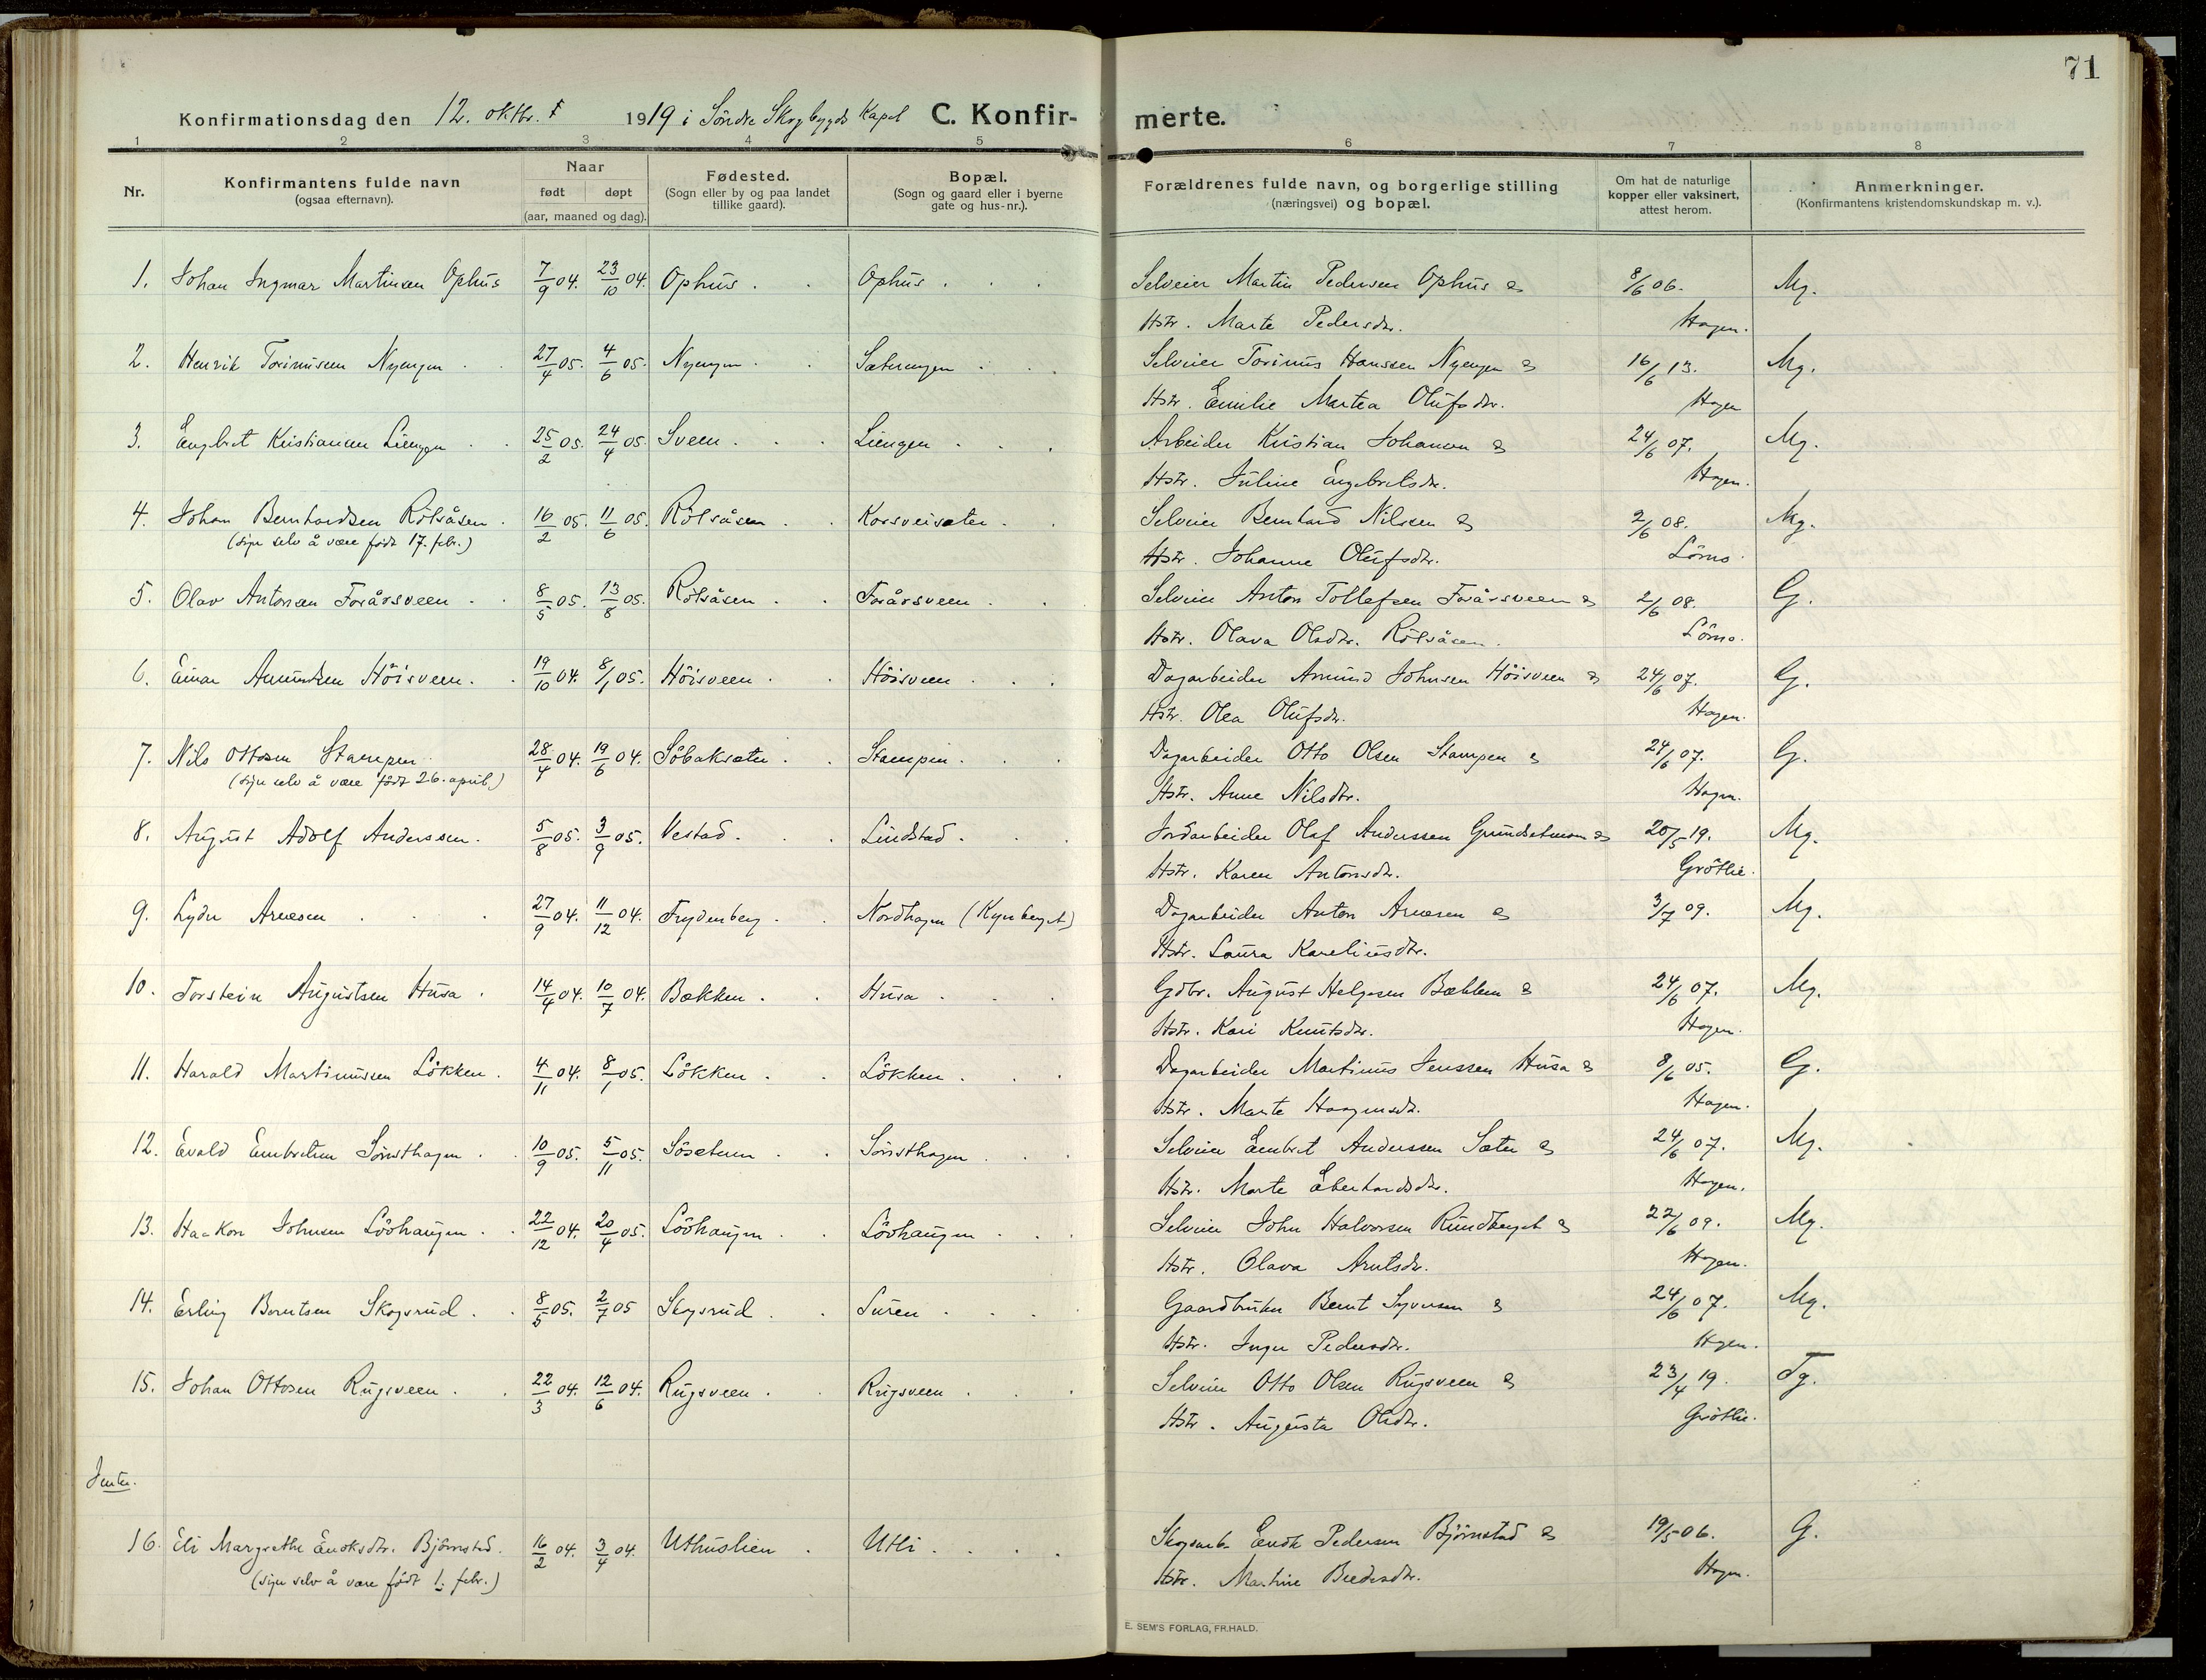 71
Konfirmationsdag den 12. oktbr. 1919 i Söndre Skogbygds Kapel C. Konfirmerte.
1 2 3 4 5 6 7 8
Nr. Konfirmantens fulde navn (ogsaa efternavn). Naar født døpt (aar, maaned og dag). Fødested. (Sogn eller by og paa landet tillike gaard). Bopæl. (Sogn og gaard eller i byerne gate og hus-nr.). Forældrenes fulde navn, og borgerlige stilling (næringsvei) og bopæl. Om hat de naturlige kopper eller vaksinert, attest herom. Anmerkninger. (Konfirmantens kristendomskundskap m. v.).
1. Johan Ingmar Martinsen Ophus 7/9 04. 23/10 04. Ophus. Ophus. Selveier Martin Pedersen Ophus & 8/6 06. Mg.
Hstr. Marte Pedersdtr. Hagen.
2. Henrik Torinusen Nyengen 27/4 05. 4/6 05. Nyengen Sæterengen Selveier Torinus Hanssen Nyengen & 16/6 13. Mg.
Hstr. Emilie Martea Olufsdtr. Hagen
3. Engebret Kristiansen Liengen 25/2 05. 24/4 05. Sveen. Liengen Arbeider Kristian Johansen & 24/6 07. Mg.
Hstr. Juline Engebretsdtr. Hagen.
4. Johan Bernhardsen Rötsåsen 16/2 05. 11/6 05. Rötsåsen Korsveisæter Selveier Bernhard Nilssen & 2/6 08. Mg.
(sier selv å være födt 17. febr.) Hstr. Johanne Olufsdtr. Lömo
5. Olav Antonsen Foråsveen 8/5 05. 13/8 05. Rötsåsen Foråsveen Selveier Anton Tollefsen Foråsveen & 2/6 08. G.
Hstr. Olava Olsdtr. Rötsåsen. Lömo.
6. Einar Amundsen Höisveen. 19/10 04. 8/1 05. Höisveen Höisveen Dagarbeider Amund Johnsen Höisveen & 24/6 07. G.
Hstr. Olea Olufsdtr. Hagen.
7. Nils Ottosen Stampen 28/4 04. 19/6 04. Söbaksæter Stampen Dagarbeider Otto Olsen Stampen & 24/6 07. G.
(sier selv å være födt 26. april.) Hstr. Anne Nilsdtr. Hagen.
8. August Adolf Anderssen. 5/8 05. 3/9 05. Vestad. Lindstad. Jordarbeider Olaf Anderssen Grundsetmoen & 20/5 19. Mg.
Hstr. Karen Antonsdtr. Gröttie.
9. Lyder Arnesen 27/9 04. 11/12 04. Frydenberg Nordhagen (Kynberget) Dagarbeider Anton Arnesen & 3/7 09. Mg.
Hstr. Laura Kareliusdtr.
10. Torstein Augustsen Husa. 14/4 04. 10/7 04. Bækken Husa Gdbr. August Helgesen Bækken & 24/6 07. Mg.
Hstr. Kari Knutsdtr. Hagen.
11. Harald Martinussen Lökken. 4/11 04. 8/1 05. Lökken Lökken Dagarbeider Martinus Jenssen Husa & 8/6 05. G.
Hstr. Marte Haagensdtr. Hagen.
12. Evald Embretsen Sörsthagen 10/9 05. 5/11 05. Sösetuen Sörsthagen Selveier Embret Anderssen Sæter & 24/6 07. Mg.
Hstr. Marte Eberhardsdtr. Hagen.
13. Haakon Johnsen Lövhaugen 22/12 04. 20/4 05. Lövhaugen Lövhaugen Selveier John Halvorsen Rundberget & 22/6 09. Mg.
Hstr. Olava Arntsdtr. Hagen.
14. Erling Berntsen Skogsrud 8/5 05. 2/7 05 Skogsrud Suren Gaardbruker Bernt Syversen & 24/6 07. Mg.
Hstr. Inger Pedersdtr. Hagen.
15. Johan Ottosen Rugsveen 22/3 04. 12/6 04. Rugsveen Rugsveen Selveier Otto Olsen Rugsveen & 23/4 19. Tg.
Hstr. Augusta Olsdtr. Gröttie.
Jenter.
16. Eli Margrethe Enoksdtr. Björnstad. 16/2 04. 3/4 04. Uthuslien Utli Skogsarb. Enok Pedersen Björnstad & 19/5 06. G.
(sier selv å være födt 1. febr.) Hstr. Martine Bredesdtr. Hagen.
E. SEM'S FORLAG, FR.HALD.